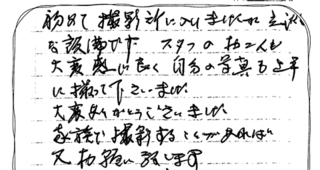 初めて撮影所に入りましたが立派
な設備です スタッフの皆さんも
大変感じ良く自分の写真も上手
に撮って下さいました
大変ありがとうございました
家族で撮影することがあれば
又お願い致します